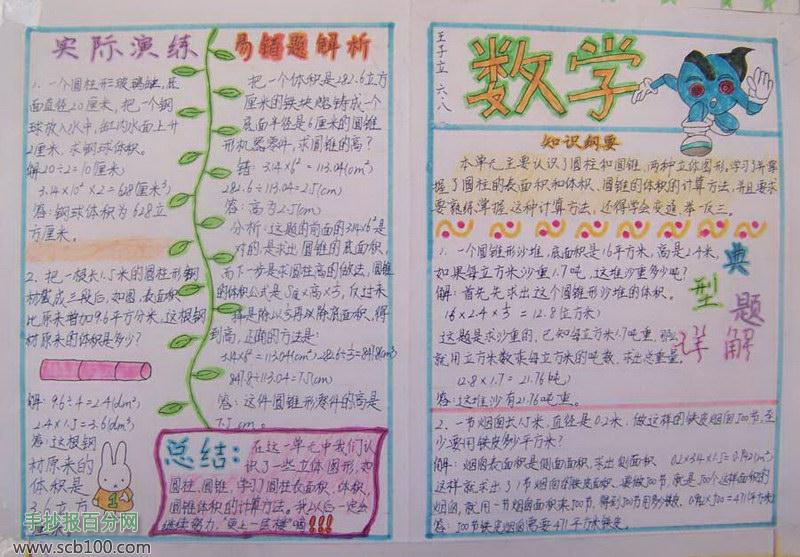 实际演练
1、一个圆柱形玻璃缸,底
面直径20厘米,把一个钢
球放入水中,缸内水面上升
2厘米,求钢球体积。
解20÷2=10(厘米)
3.14×10²×2=628(厘米³)
答:钢球体积为628立
方厘米。
2、把一根长1.5米的圆柱形钢
材截成三段后,如图,表面积
比原来增加9.6平方分米,这根钢
材原来的体积是多少?
解:9.6÷4=2.4(dm²)
2.4×1.5=3.6(dm³)
答:这根钢
材原来的
体积是
易错题解析
把一个体积是282.6立方
厘米的铁块熔铸成一个
底面半径是6厘米的圆锥
形机器零件,求圆锥的高?
错:3.14×6²=113.04(cm²)
282.6÷113.04=2.5(cm)
答:高为2.5(cm)
分析:这题的前面的3.14×6²是
对的,是求出圆锥的底面积,
而下一步是求圆柱高的做法,圆锥
的体积公式是S底×高×⅓,反过来
得到高,正确的方法是:
3.14×6²=113.04(cm²) 282.6÷⅓=847.8(cm³)
847.8÷113.04=7.5(cm)
答:这件圆锥形零件的高是
7.5cm。
总结:
在这一单元中我们认
识了一些立体图形,如
圆柱,圆锥,学习了圆柱表面积,体积,
圆锥体积的计算方法。我以后一定会
继续努力,“更上一层楼”哦!!!
王子立 六.八
数学
知识纲要
本单元主要认识了圆柱和圆锥,两种立体图形,学习了并掌
握了圆柱的表面积和体积、圆锥的体积的计算方法,并且要求
要熟练掌握这种计算方法,还得学会变通,举一反三。
典型题详解
1、一个圆锥形沙堆,底面积是16平方米,高是2.4米,
如果每立方米沙重1.7吨,这堆沙重多少吨?
解:首先先求出这个圆锥形沙堆的体积。
16×2.4×⅓=12.8(立方米)
这题是求沙重的,已知每立方米1.7吨重,那么
就用立方米数乘每立方米的吨数,求出总重量。
12.8×1.7=21.76(吨)
答:这堆沙有21.76吨重。
2、一节烟囱长1.5米,直径是0.2米,做这样的铁皮烟囱100节,至
少要用铁皮多少平方米?
解:烟囱表面积是侧面面积,求出侧面积 0.2×3.14×1.5=0.942(m²)
这样就求出了1节烟囱的铁皮面积,要做100节,就是100个这样面积的
答:100节铁皮烟囱需要
手抄报百分网
www.scb100.com